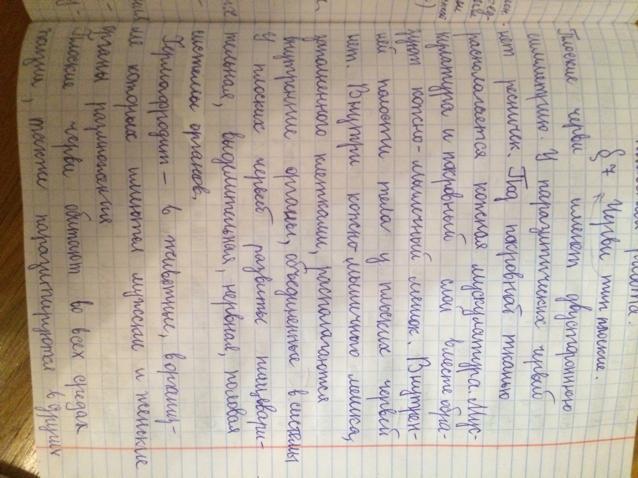 работа.
§ 7 Черви тип плоские.
Плоские черви имеют двустороннюю
симметрию. У паразитических червей
нет ресничек. Под покровной тканью
располагается кожная мускулатура. Мус-
кулатура и покровный слой вместе обра-
зуют кожно-мышечный мешок. Внутрен-
ней полости тела у плоских червей
нет. Внутри кожно-мышечного мешка,
заполненного клетками, располагаются
внутренние органы, объединенные в системы
У плоских червей развиты пищевари-
тельная, выделительная, нервная, половая
системы органов.
Гермафродит – в животные, в организ-
ме которых имеются мужские и женские
органы размножения
Плоские черви обитают во всех средах
жизни, также паразитируются в других